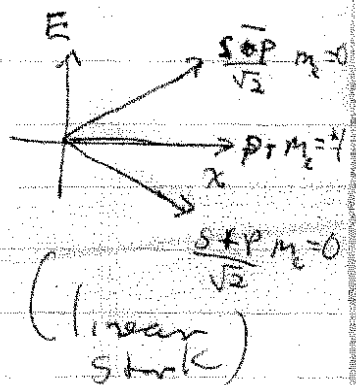 E
s - p m_ℓ = 0
√2
p, m_ℓ = ±1
x
s + p m_ℓ = 0
√2
(linear
Stark)